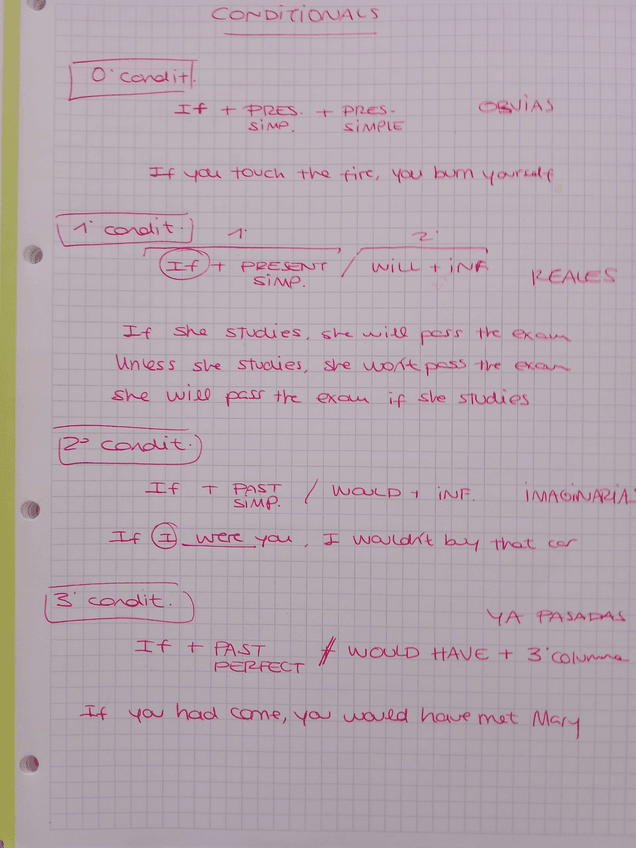 CONDITIONALS
0· condit.
If + PRES. + PRES. OBVIAS
SIMP. SIMPLE
If you touch the fire, you burn yourself
1· condit. 1· 2·
If + PRESENT / WILL + INF REALES
SIMP.
If she studies, she will pass the exam
Unless she studies, she won't pass the exam
she will pass the exam if she studies
2º condit.
If + PAST / WOULD + INF. IMAGINARIAS
SIMP.
If I were you, I wouldn't buy that car
3· condit.
YA PASADAS
If + PAST / WOULD HAVE + 3·columna
PERFECT
If you had come, you would have met Mary